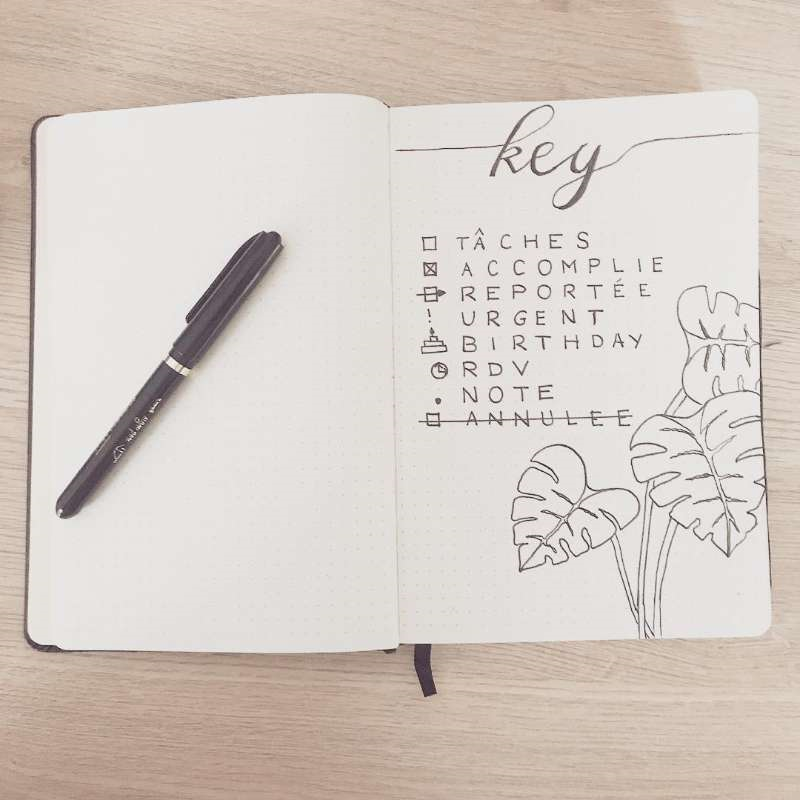 key
TÂCHES
ACCOMPLIE
REPORTÉE
! URGENT
BIRTHDAY
RDV
NOTE
ANNULEE